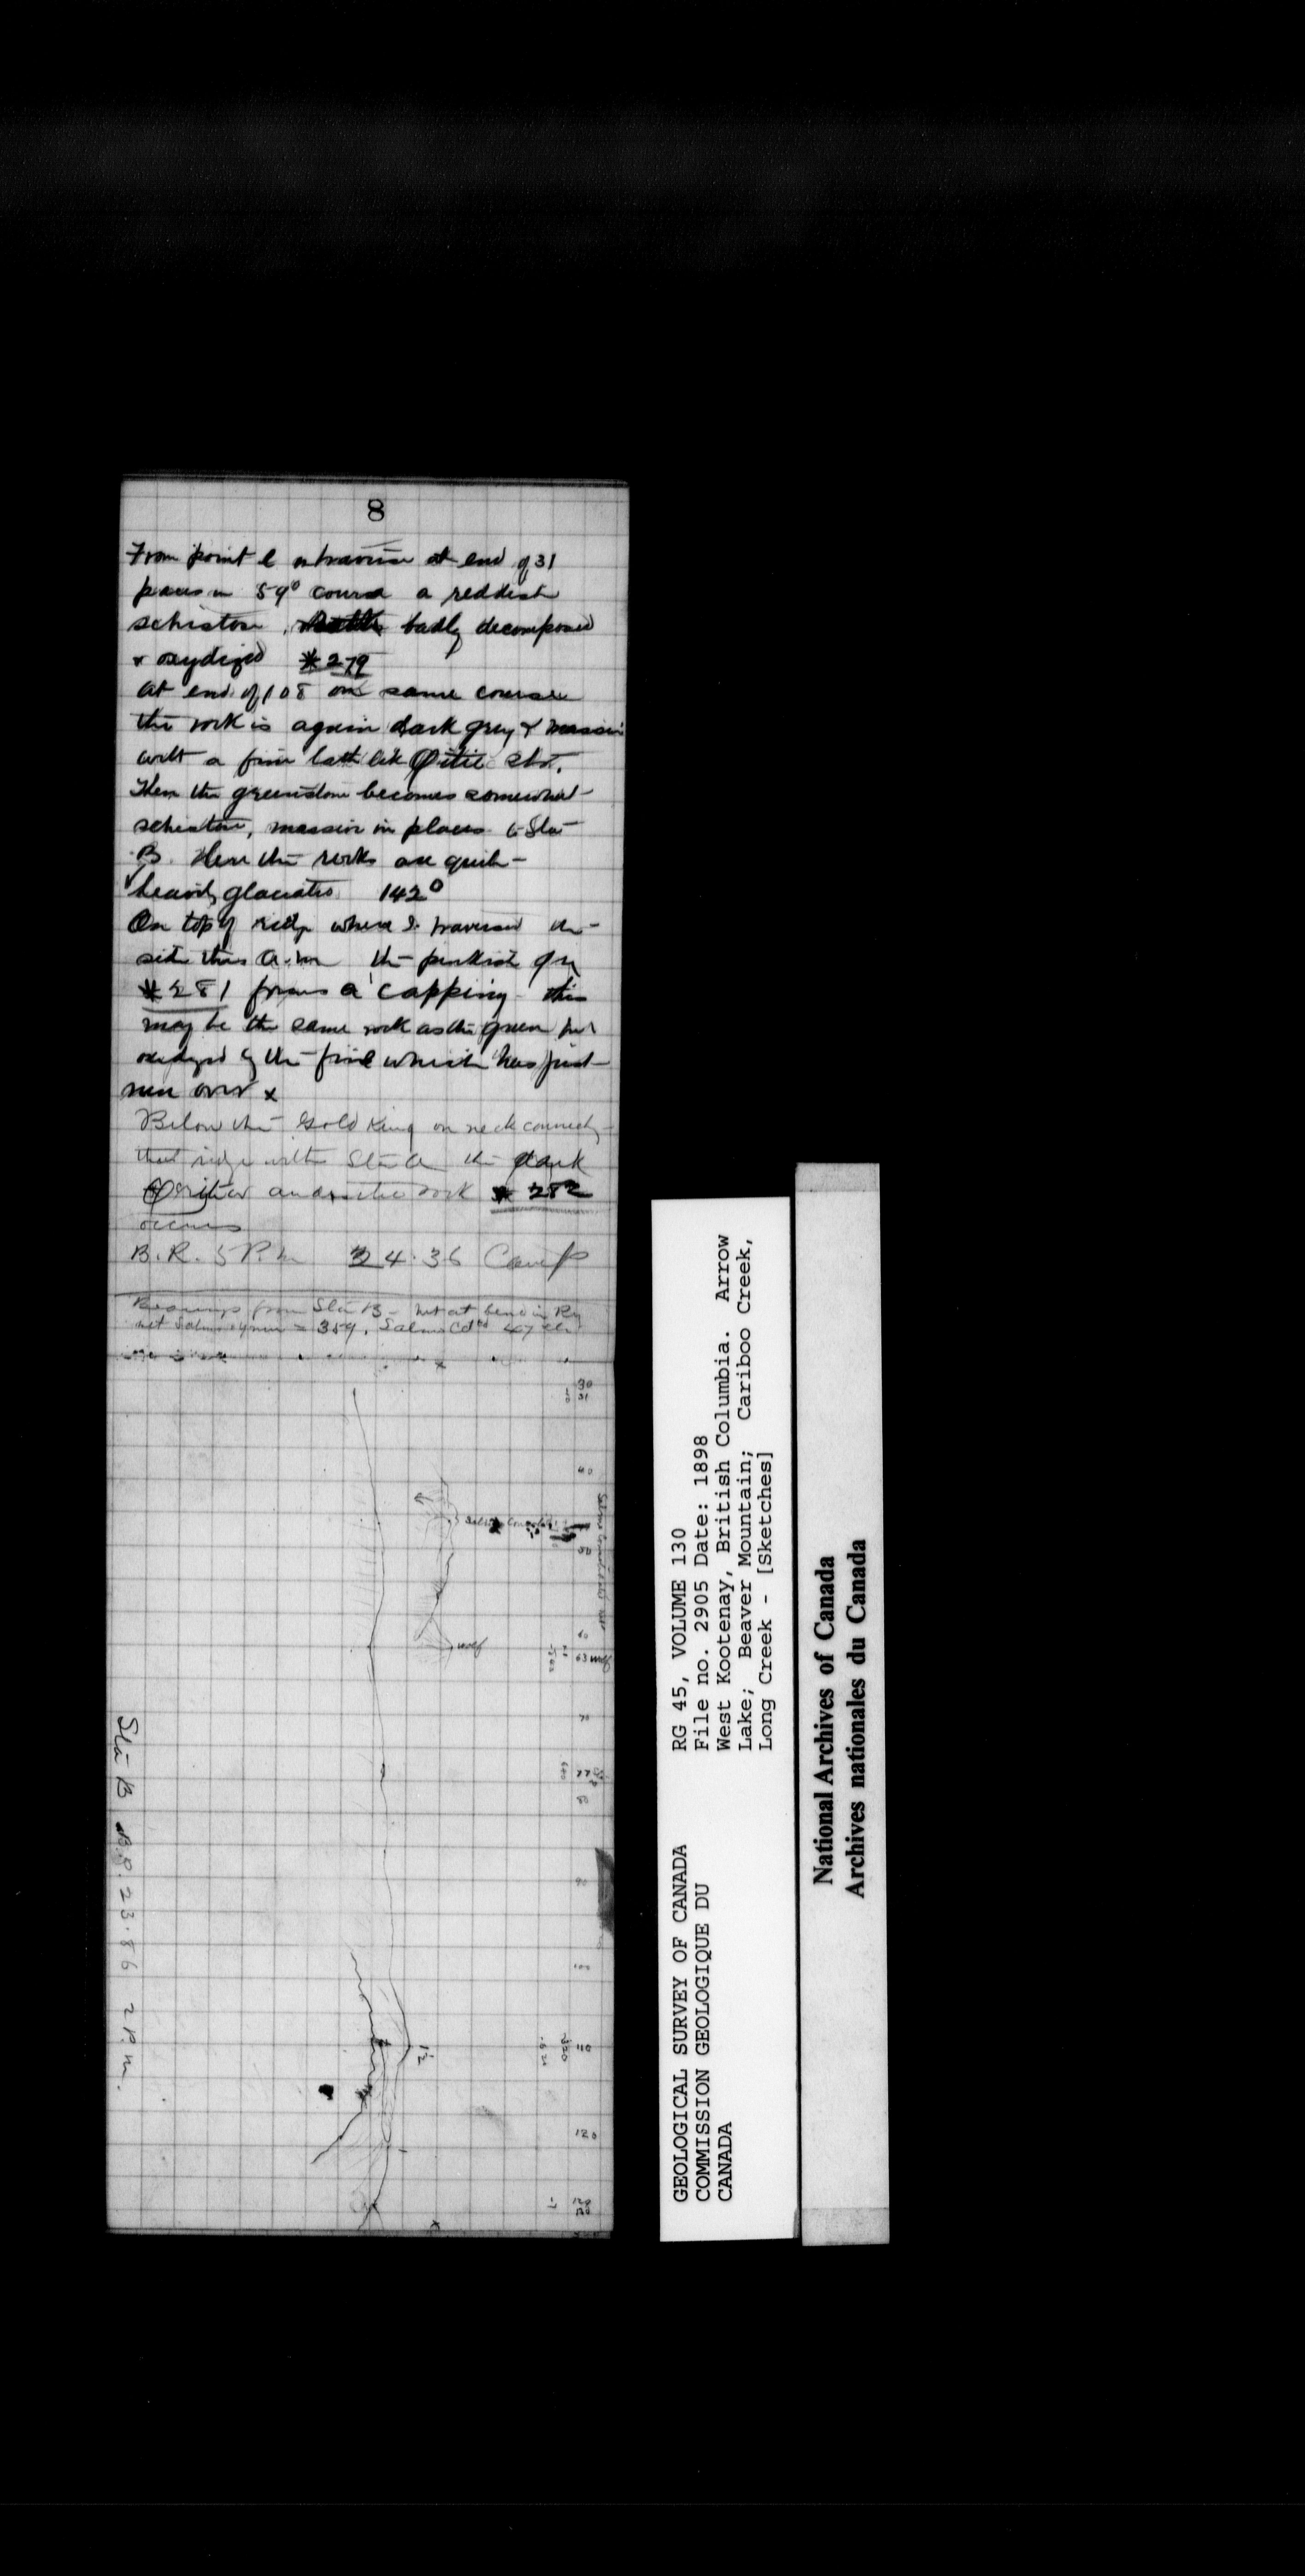 8
From point e traverse at end of 31
paces on 59° course a reddish
schistose, badly decomposed
& oxydized *279
at end of 108 on same course
the rock is again dark grey & massive
with a fine lath like
Then the greenstone becomes somewhat
schistose, massive in places to Sta
B. Here the rocks are quite
heavily glaciated 142°
On top of ridge where I traversed
side this a.m the pinkish
*281 forms a capping this
may be the same rock as the green but
oxidyzed by the fire which has just
run over x
Below the Gold King on neck connecting
that ridge with Sta A the dark
rock * 282
occurs
B.R. 5 P.m 24.36 Camp
Bearings from Sta B -
= 359,
30
31
40
50
60
63
70
77
80
90
110
120
1½
Sta B B.R. 23.86 2 P.m.
GEOLOGICAL SURVEY OF CANADA
COMMISSION GEOLOGIQUE DU
CANADA
RG 45, VOLUME 130
File no. 2905 Date: 1898
West Kootenay, British Columbia. Arrow
Lake; Beaver Mountain; Cariboo Creek,
Long Creek - [Sketches]
National Archives of Canada
Archives nationales du Canada